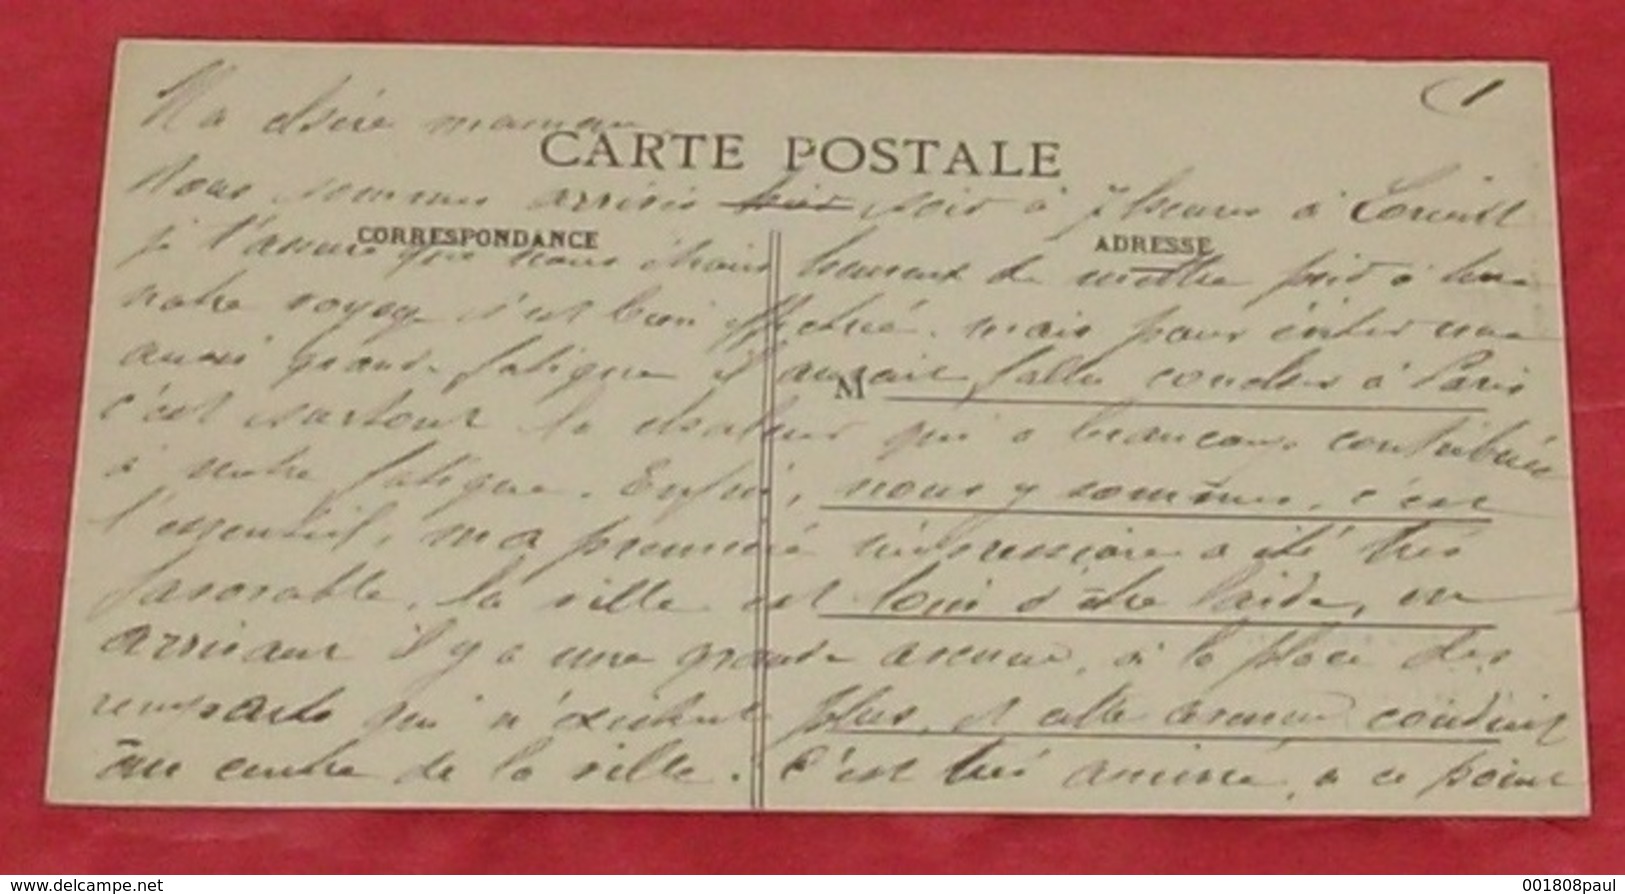 1
Ma chère maman
CARTE POSTALE
Nous sommes arrivés hier soir à 7 heures à Lorient
CORRESPONDANCE
ADRESSE
je t'assure que nous étions heureux de mettre pied à terre
notre voyage s'est bien effectué. mais pour éviter une
aussi grande fatigue il aurait fallu coucher à Paris
M
c'est surtout la chaleur qui a beaucoup contribué
à notre fatigue. Enfin, nous y sommes, c'est
l'essentiel, ma première impression a été très
favorable, la ville est loin d'être laide, en
arrivant il y a une grande avenue, à la place des
remparts qui n'existent plus, et cette avenue conduit
au centre de la ville. C'est très animé, à ce point
www.delcampe.net
001808paul